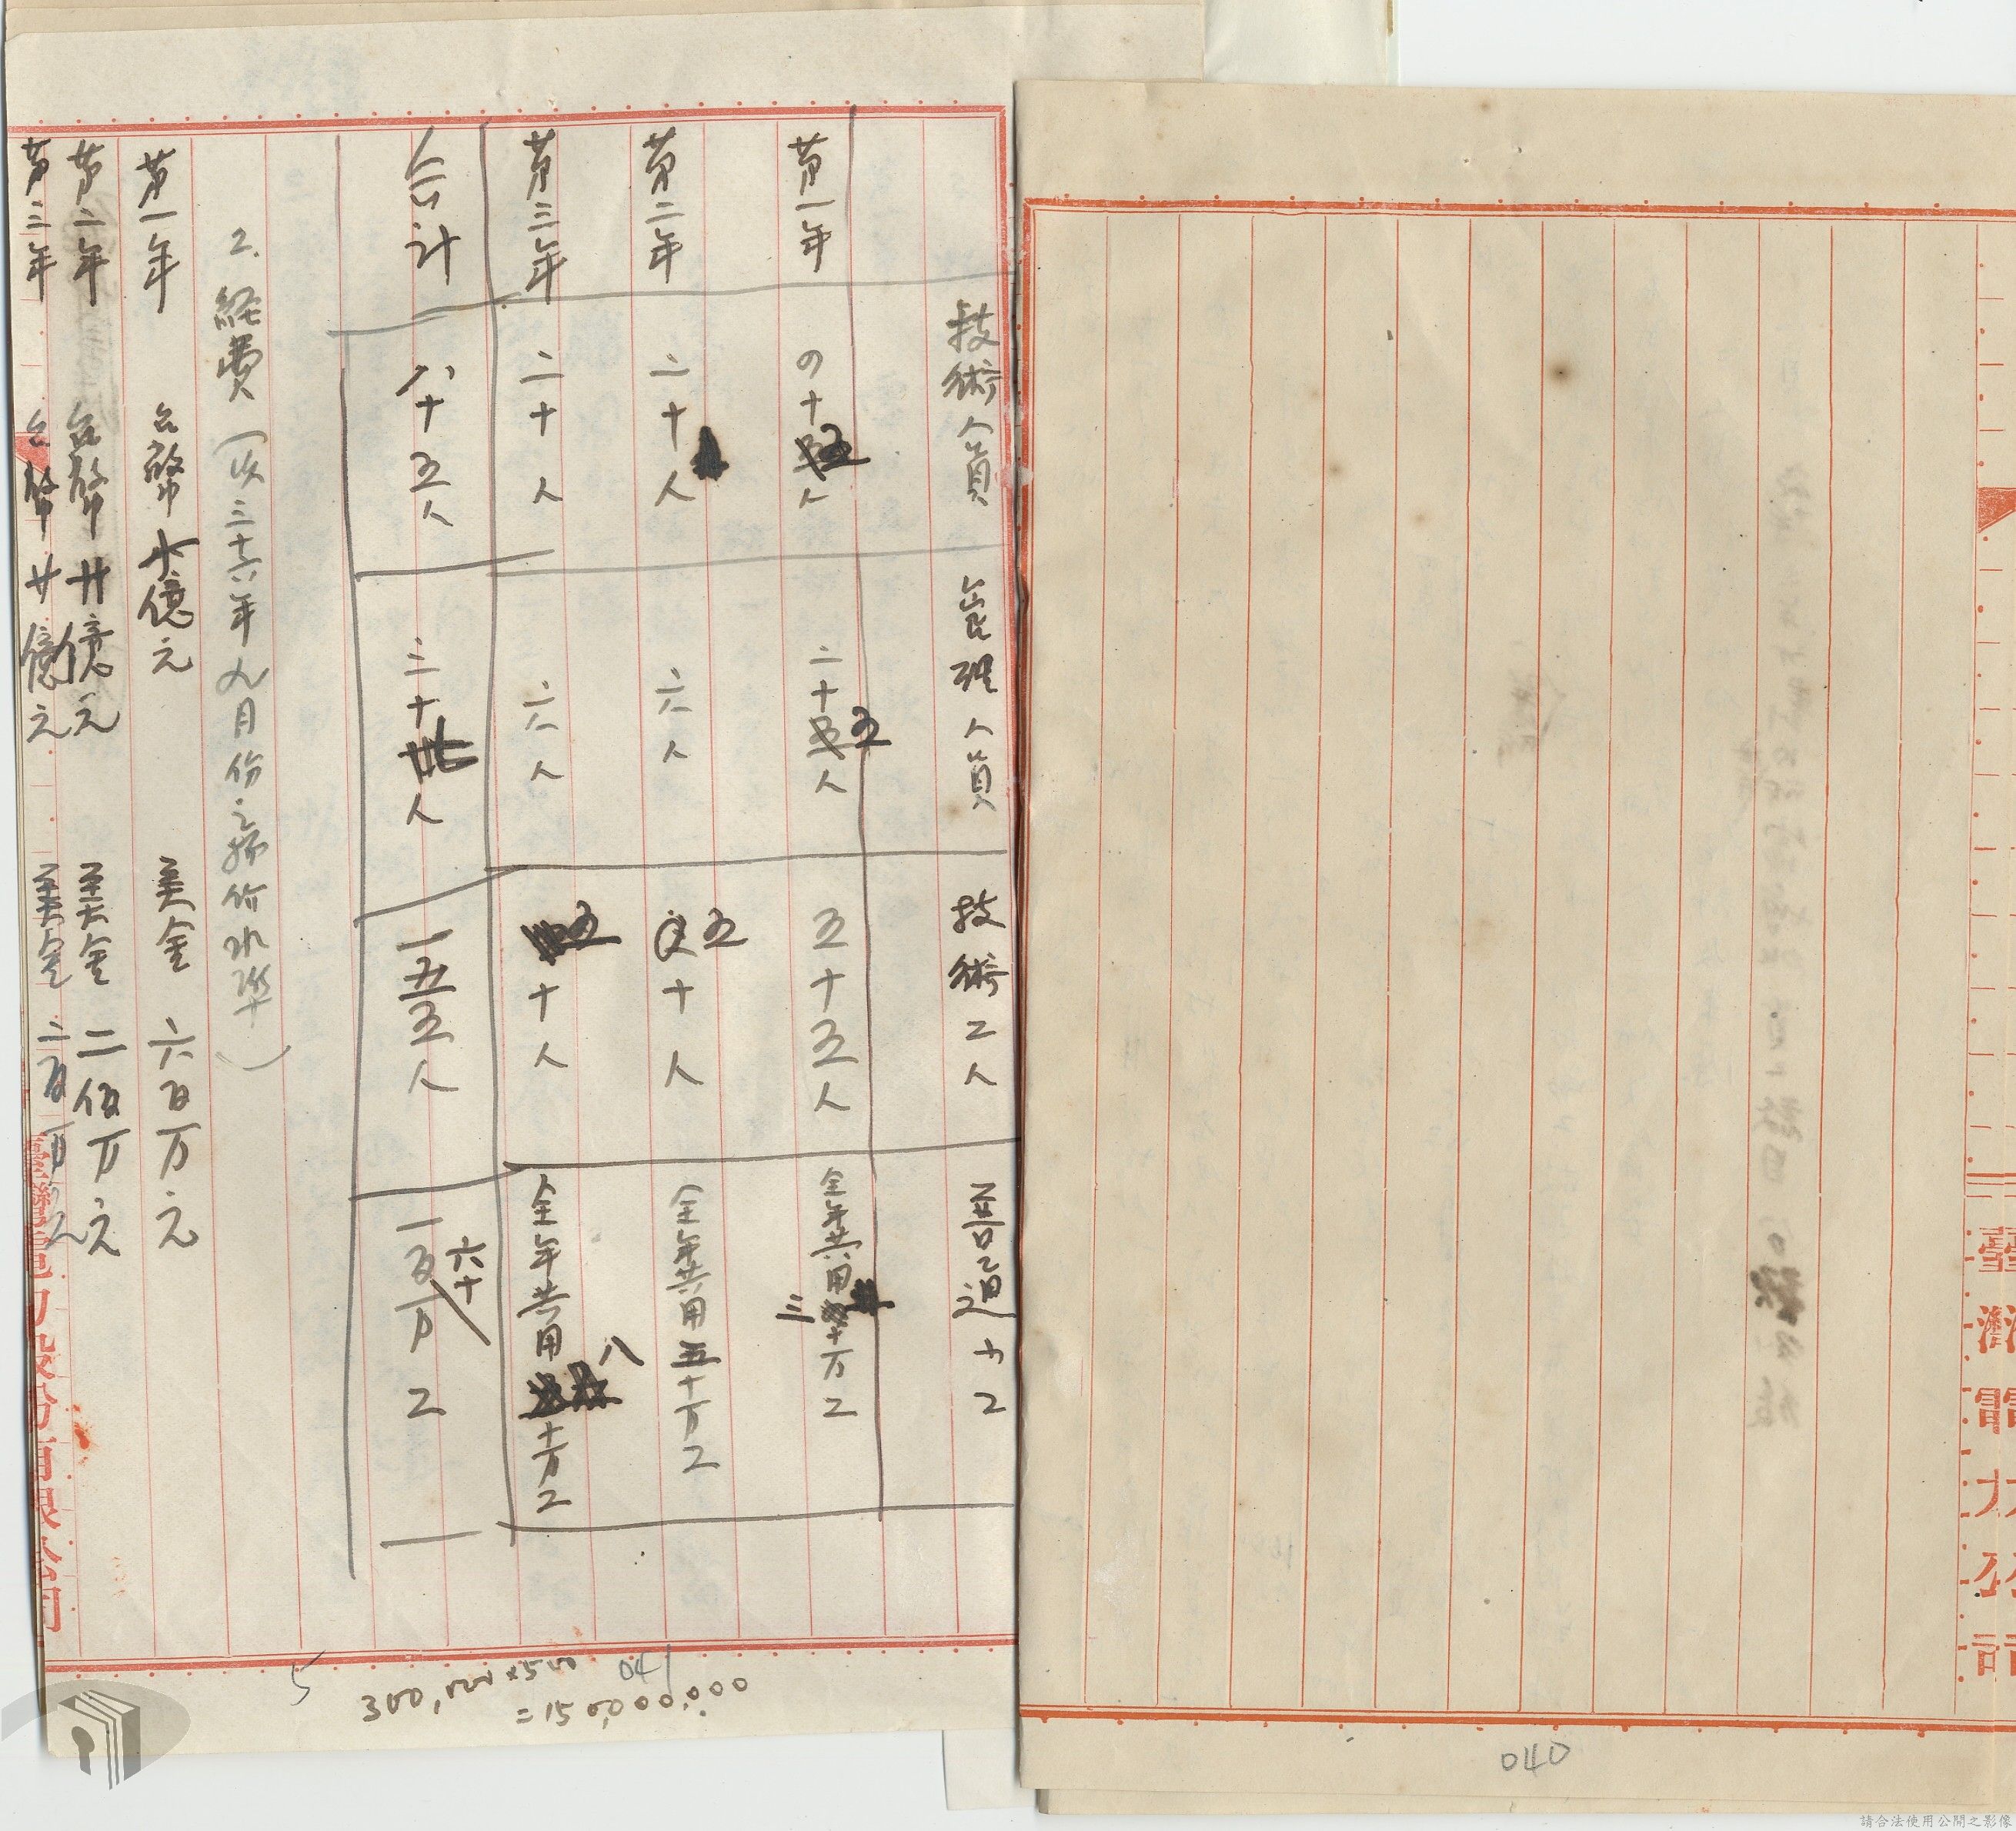 技術人員　管理人員　技術工人　普通小工
第一年　四十五人　二十五人　五十五人　全年共用三十万工
第二年　二十人　六人　五十人　全年共用五十万工
第三年　二十人　六人　五十人　全年共用八十万工
合計　八十五人　三十七人　一五五人　一百六十万工
2. 経費（以三十六年九月份之物价水準）
第一年　台幣十億元　美金六百万元
第二年　台幣廿億元　美金二佰万元
第三年　台幣廿億元　美金二百万元
臺灣電力股份有限公司
5
041
=150,000,000
臺灣電力公司
040
請合法使用公開之影像